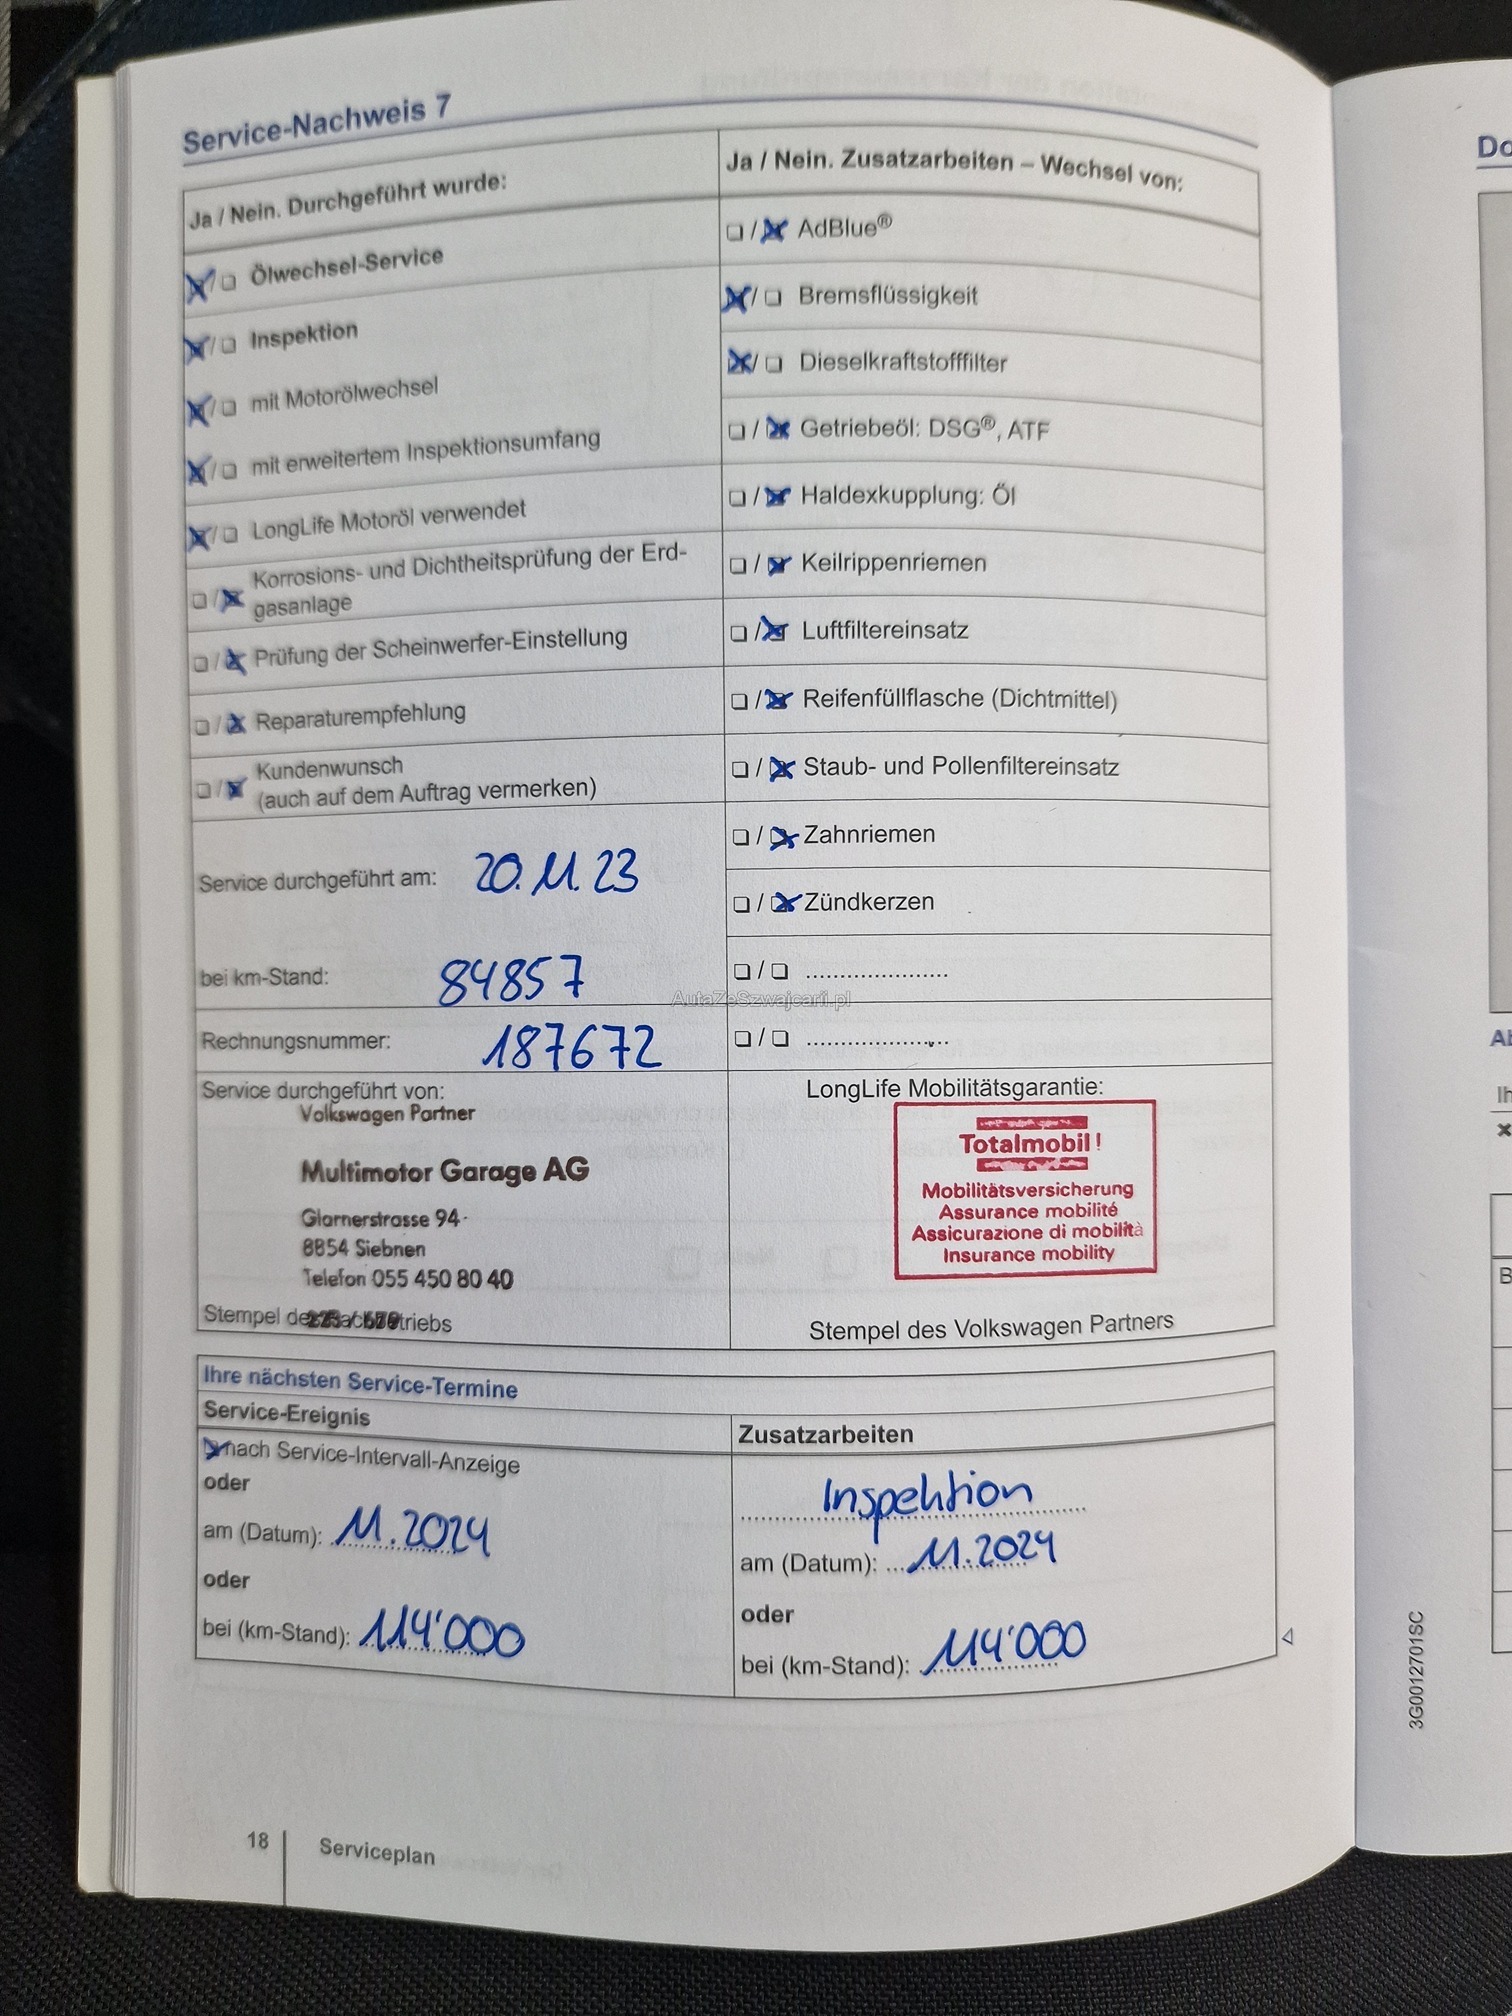 Service-Nachweis 7
Ja / Nein. Durchgeführt wurde:
Ölwechsel-Service
Inspektion
mit Motorölwechsel
mit erweitertem Inspektionsumfang
LongLife Motoröl verwendet
Korrosions- und Dichtheitsprüfung der Erd-
gasanlage
Prüfung der Scheinwerfer-Einstellung
Reparaturempfehlung
Kundenwunsch
(auch auf dem Auftrag vermerken)
Service durchgeführt am: 20.11.23
bei km-Stand: 84857
Rechnungsnummer: 187672
Service durchgeführt von:
Volkswagen Partner
Multimotor Garage AG
Glarnerstrasse 94
8854 Siebnen
Telefon 055 450 80 40
Stempel des
Ja / Nein. Zusatzarbeiten – Wechsel von:
AdBlue®
Bremsflüssigkeit
Dieselkraftstofffilter
Getriebeöl: DSG®, ATF
Haldexkupplung: Öl
Keilrippenriemen
Luftfiltereinsatz
Reifenfüllflasche (Dichtmittel)
Staub- und Pollenfiltereinsatz
Zahnriemen
Zündkerzen
AutaZeSzwajcarii.pl
LongLife Mobilitätsgarantie:
Totalmobil!
Mobilitätsversicherung
Assurance mobilité
Assicurazione di mobilità
Insurance mobility
Stempel des Volkswagen Partners
Ihre nächsten Service-Termine
Service-Ereignis
nach Service-Intervall-Anzeige
oder
am (Datum): 11.2024
oder
bei (km-Stand): 114'000
Zusatzarbeiten
Inspektion
am (Datum): 11.2024
oder
bei (km-Stand): 114'000
18 Serviceplan
3G0012701SC